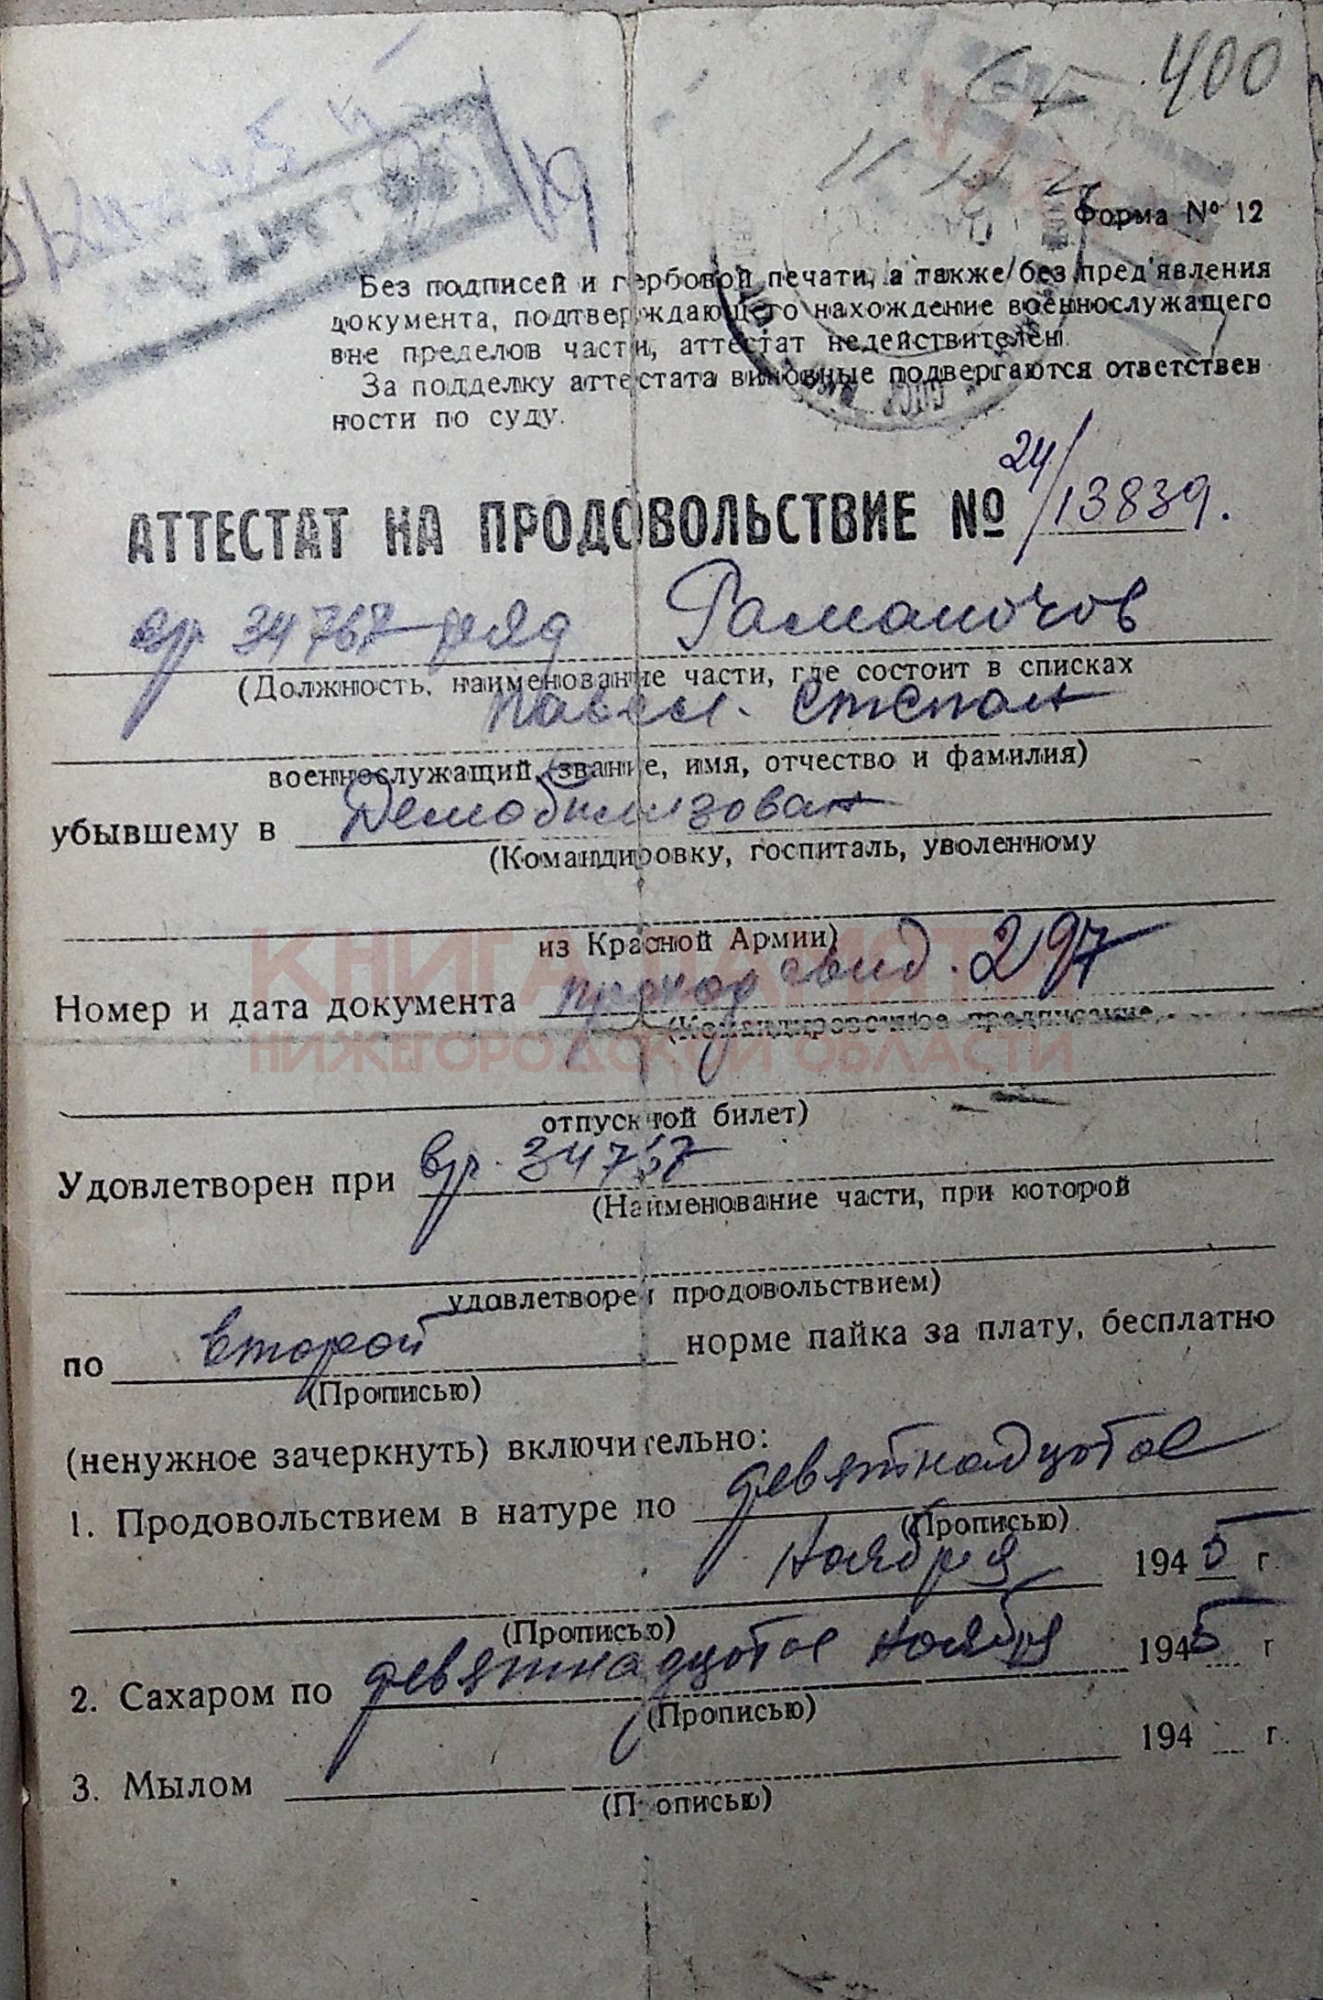 400
Форма № 12
Без подписей и гербовой печати, а также без пред'явления
документа, подтверждающего нахождение военнослужащего
вне пределов части, аттестат недействителен.
За подделку аттестата виновные подвергаются ответствен
ности по суду.
АТТЕСТАТ НА ПРОДОВОЛЬСТВИЕ № 24/13839.
34767 ряд
(Должность, наименование части, где состоит в списках
Степан
военнослужащий (звание, имя, отчество и фамилия)
убывшему в Демобилизован
(Командировку, госпиталь, уволенному
из Красной Армии)
КНИГА ПАМЯТИ
Номер и дата документа проход свид. 297
(Командировочное предписание,
НИЖЕГОРОДСКОЙ ОБЛАСТИ
отпускной билет)
Удовлетворен при 34767
(Наименование части, при которой
удовлетворен продовольствием)
по второй норме пайка за плату, бесплатно
(Прописью)
(ненужное зачеркнуть) включительно:
1. Продовольствием в натуре по девятнадцатое
(Прописью)
Ноября 1945 г
(Прописью)
2. Сахаром по девятнадцатое Ноября 1945 г
(Прописью)
3. Мылом 194 г.
(Прописью)